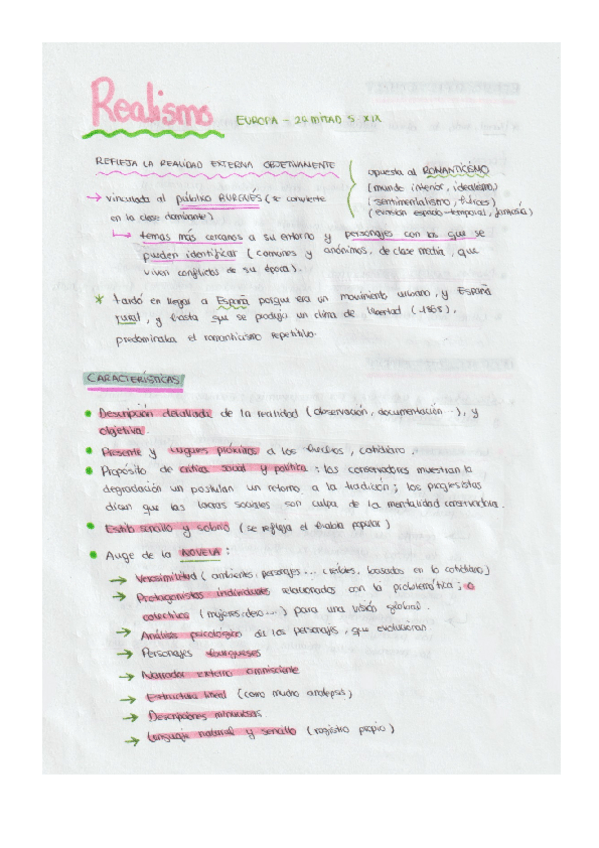 Realismo EUROPA - 2ª MITAD S. XIX
REFLEJA LA REALIDAD EXTERNA OBJETIVAMENTE
opuesta al ROMANTICISMO
(mundo interior, idealismo)
(sentimentalismo, )
(evasión espacio-temporal, fantasía)
→ vinculada al público BURGUÉS (se convierte
en la clase dominante)
↳ temas más cercanos a su entorno y personajes con los que se
pueden identificar (comunes y anónimos, de clase media, que
viven conflictos de su época).
* tardó en llegar a España porque era un movimiento urbano, y España
rural, y hasta que se produjo un clima de libertad (1868),
predominaba el romanticismo repetitivo.
CARACTERÍSTICAS
• Descripción detallada de la realidad (observación, documentación...), y
objetiva.
• Presente y lugares próximos a los hechos, cotidiano.
• Propósito de crítica social y política: los conservadores muestran la
degradación un postulan un retorno a la tradición; los progresistas
dican que las lacras sociales son culpa de la mentalidad conservadora.
• Estilo sencillo y sobrio (se refleja el habla popular)
• Auge de la NOVELA:
→ Verosimilitud (ambientes, personajes... creíbles, basados en lo cotidiano)
→ Protagonistas individuales relacionados con la problemática; o
colectivos (mujeres, ...) para una visión global.
→ Análisis psicológico de los personajes, que evolucionan.
→ Personajes burgueses
→ Narrador externo omnisciente
→ Estructura lineal (como mucho analepsis)
→ Descripciones minuciosas
→ Lenguaje natural y sencillo (registro propio)